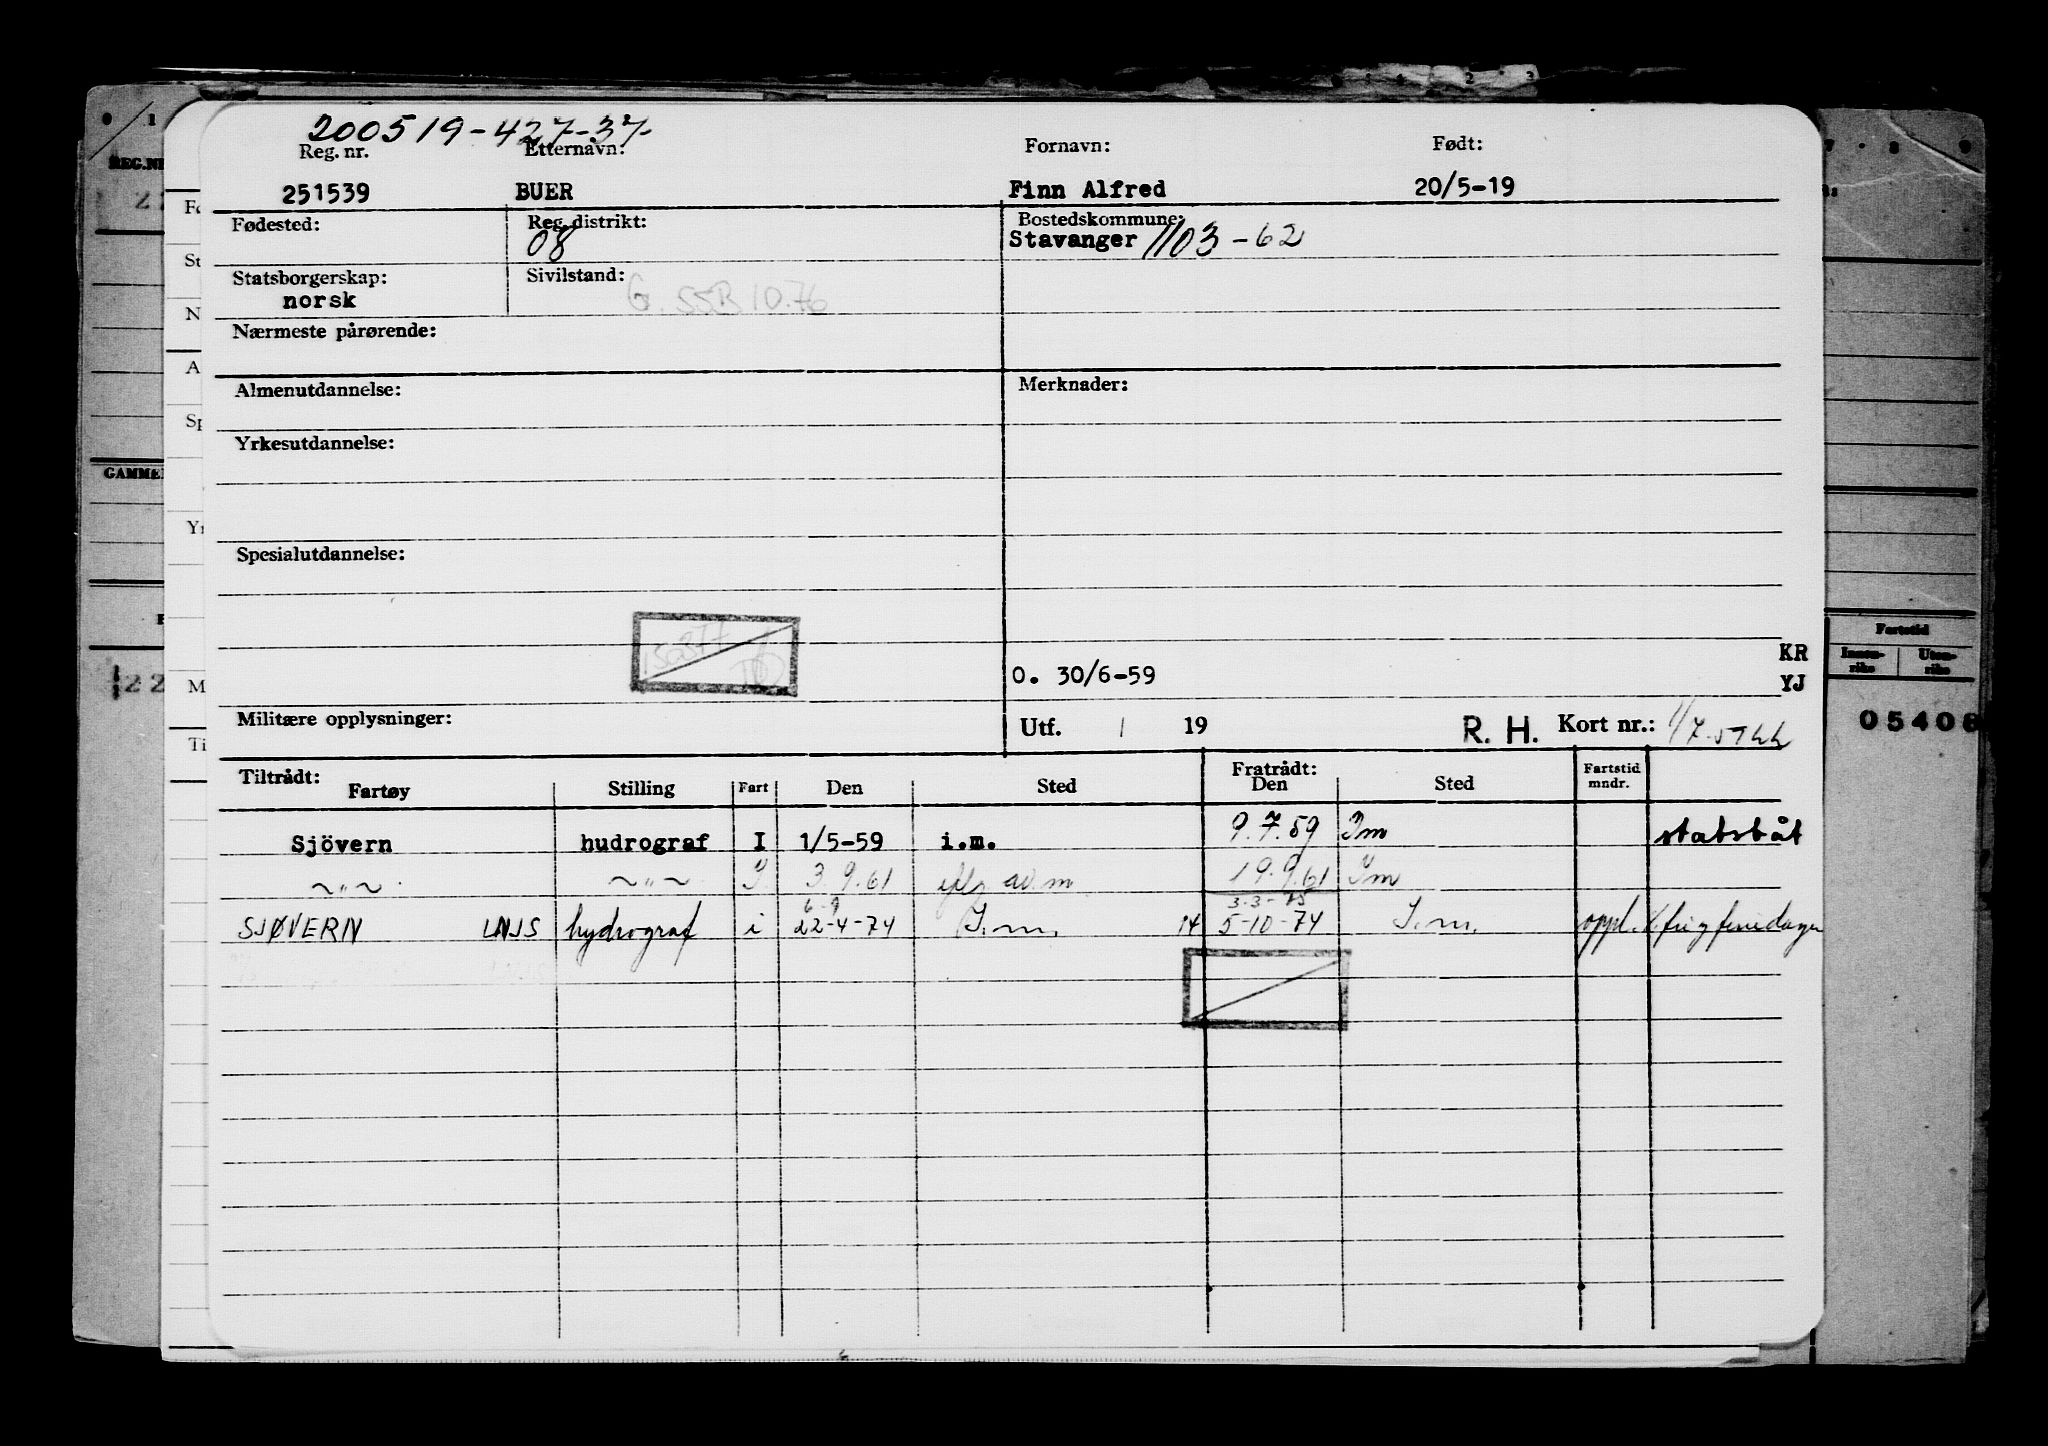 200519-427-37-
Reg. nr. Etternavn: Fornavn: Født:
251539 BUER Finn Alfred 20/5-19
Fødested: Reg. distrikt: Bostedskommune:
08 Stavanger 1103-62
Statsborgerskap: Sivilstand:
norsk G. SSB 10.76
Nærmeste pårørende:
Almenutdannelse: Merknader:
Yrkesutdannelse:
Spesialutdannelse:
KR
O. 30/6-59 YJ
Militære opplysninger: Utf. / 19 R. H. Kort nr.:
Tiltrådt: Fratrådt:
Fartøy Stilling Fart Den Sted Den Sted Fartstid mndr.
Sjövern hudrograf I 1/5-59 i.m. 9.7.59 Im statsbåt
~"~ ~"~ I 3.9.61 19.9.61 Im
6-9 3-3-75
SJØVERN LNJS hydrograf i 22-4-74 I.m. 14 5-10-74 I.m. oppl.
0 1
REG.NR
GAMMEL
Fartstid
Innen-riks Uten-riks
05408